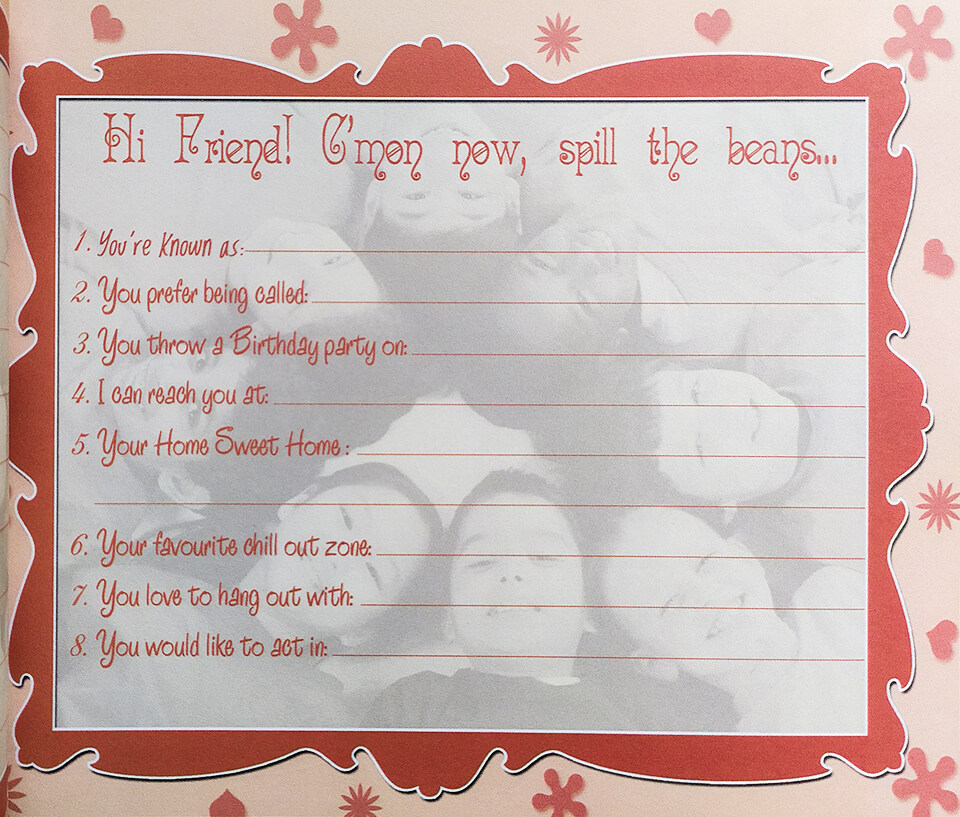 Hi Friend! C'mon now, spill the beans...
1. You're Known as:
2. You prefer being called:
3. You throw a Birthday party on:
4. I can reach you at:
5. Your Home Sweet Home :
6. Your favourite chill out zone:
7. You love to hang out with:
8. You would like to act in: